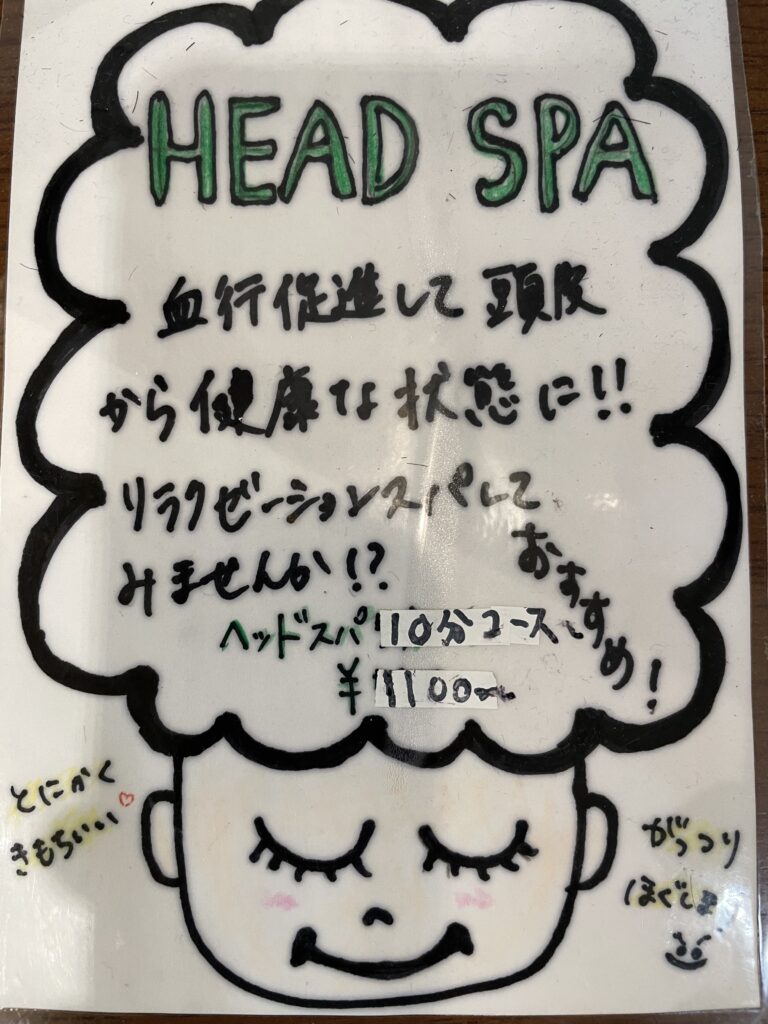 HEAD SPA
血行促進して 頭皮
から健康な状態に!!
リラクゼーションスパして
みませんか!?
おすすめ!
ヘッドスパ 10分コース
¥1100〜
とにかく
きもちいい♡
がっつり
ほぐしま